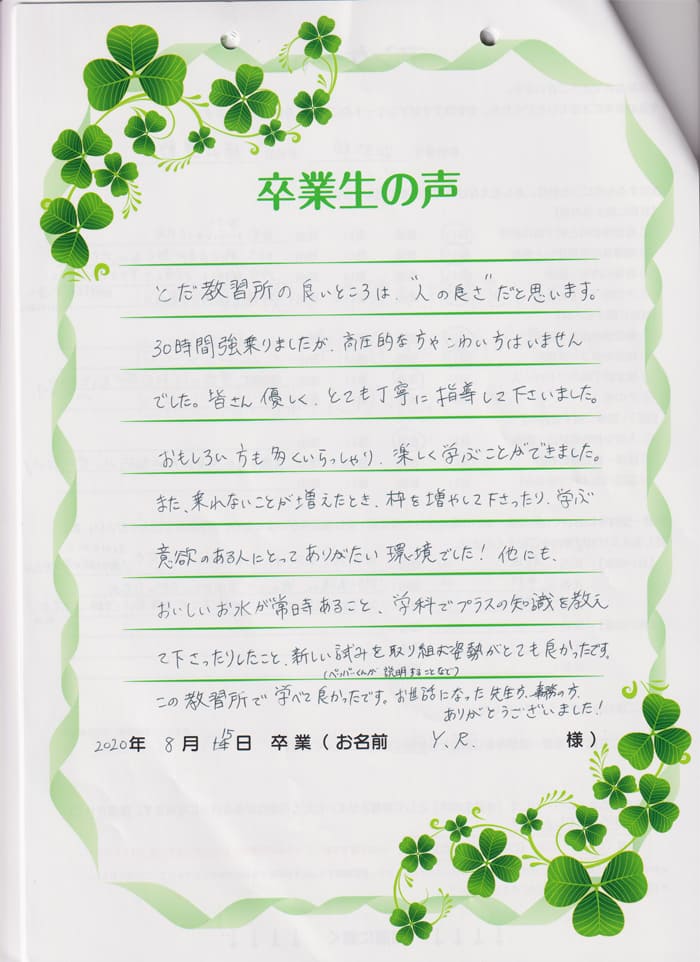 卒業生の声
とだ教習所の良いところは、"人の良さ"だと思います。
30時間強乗りましたが、高圧的な方やこわい方はいません
でした。皆さん優しく、とても丁寧に指導して下さいました。
おもしろい方も多くいらっしゃり、楽しく学ぶことができました。
また、乗れないことが増えたとき、枠を増やして下さったり、学ぶ
意欲のある人にとってありがたい環境でした！他にも、
おいしいお水が常時あること、学科でプラスの知識を教え
て下さったりしたこと、新しい試みを取り組む姿勢がとても良かったです。
(ペッパーくんが説明することなど)
この教習所で学べて良かったです。お世話になった先生方、事務の方、
ありがとうございました！
2020年 8月 15日 卒業（お名前 Y.R. 様）